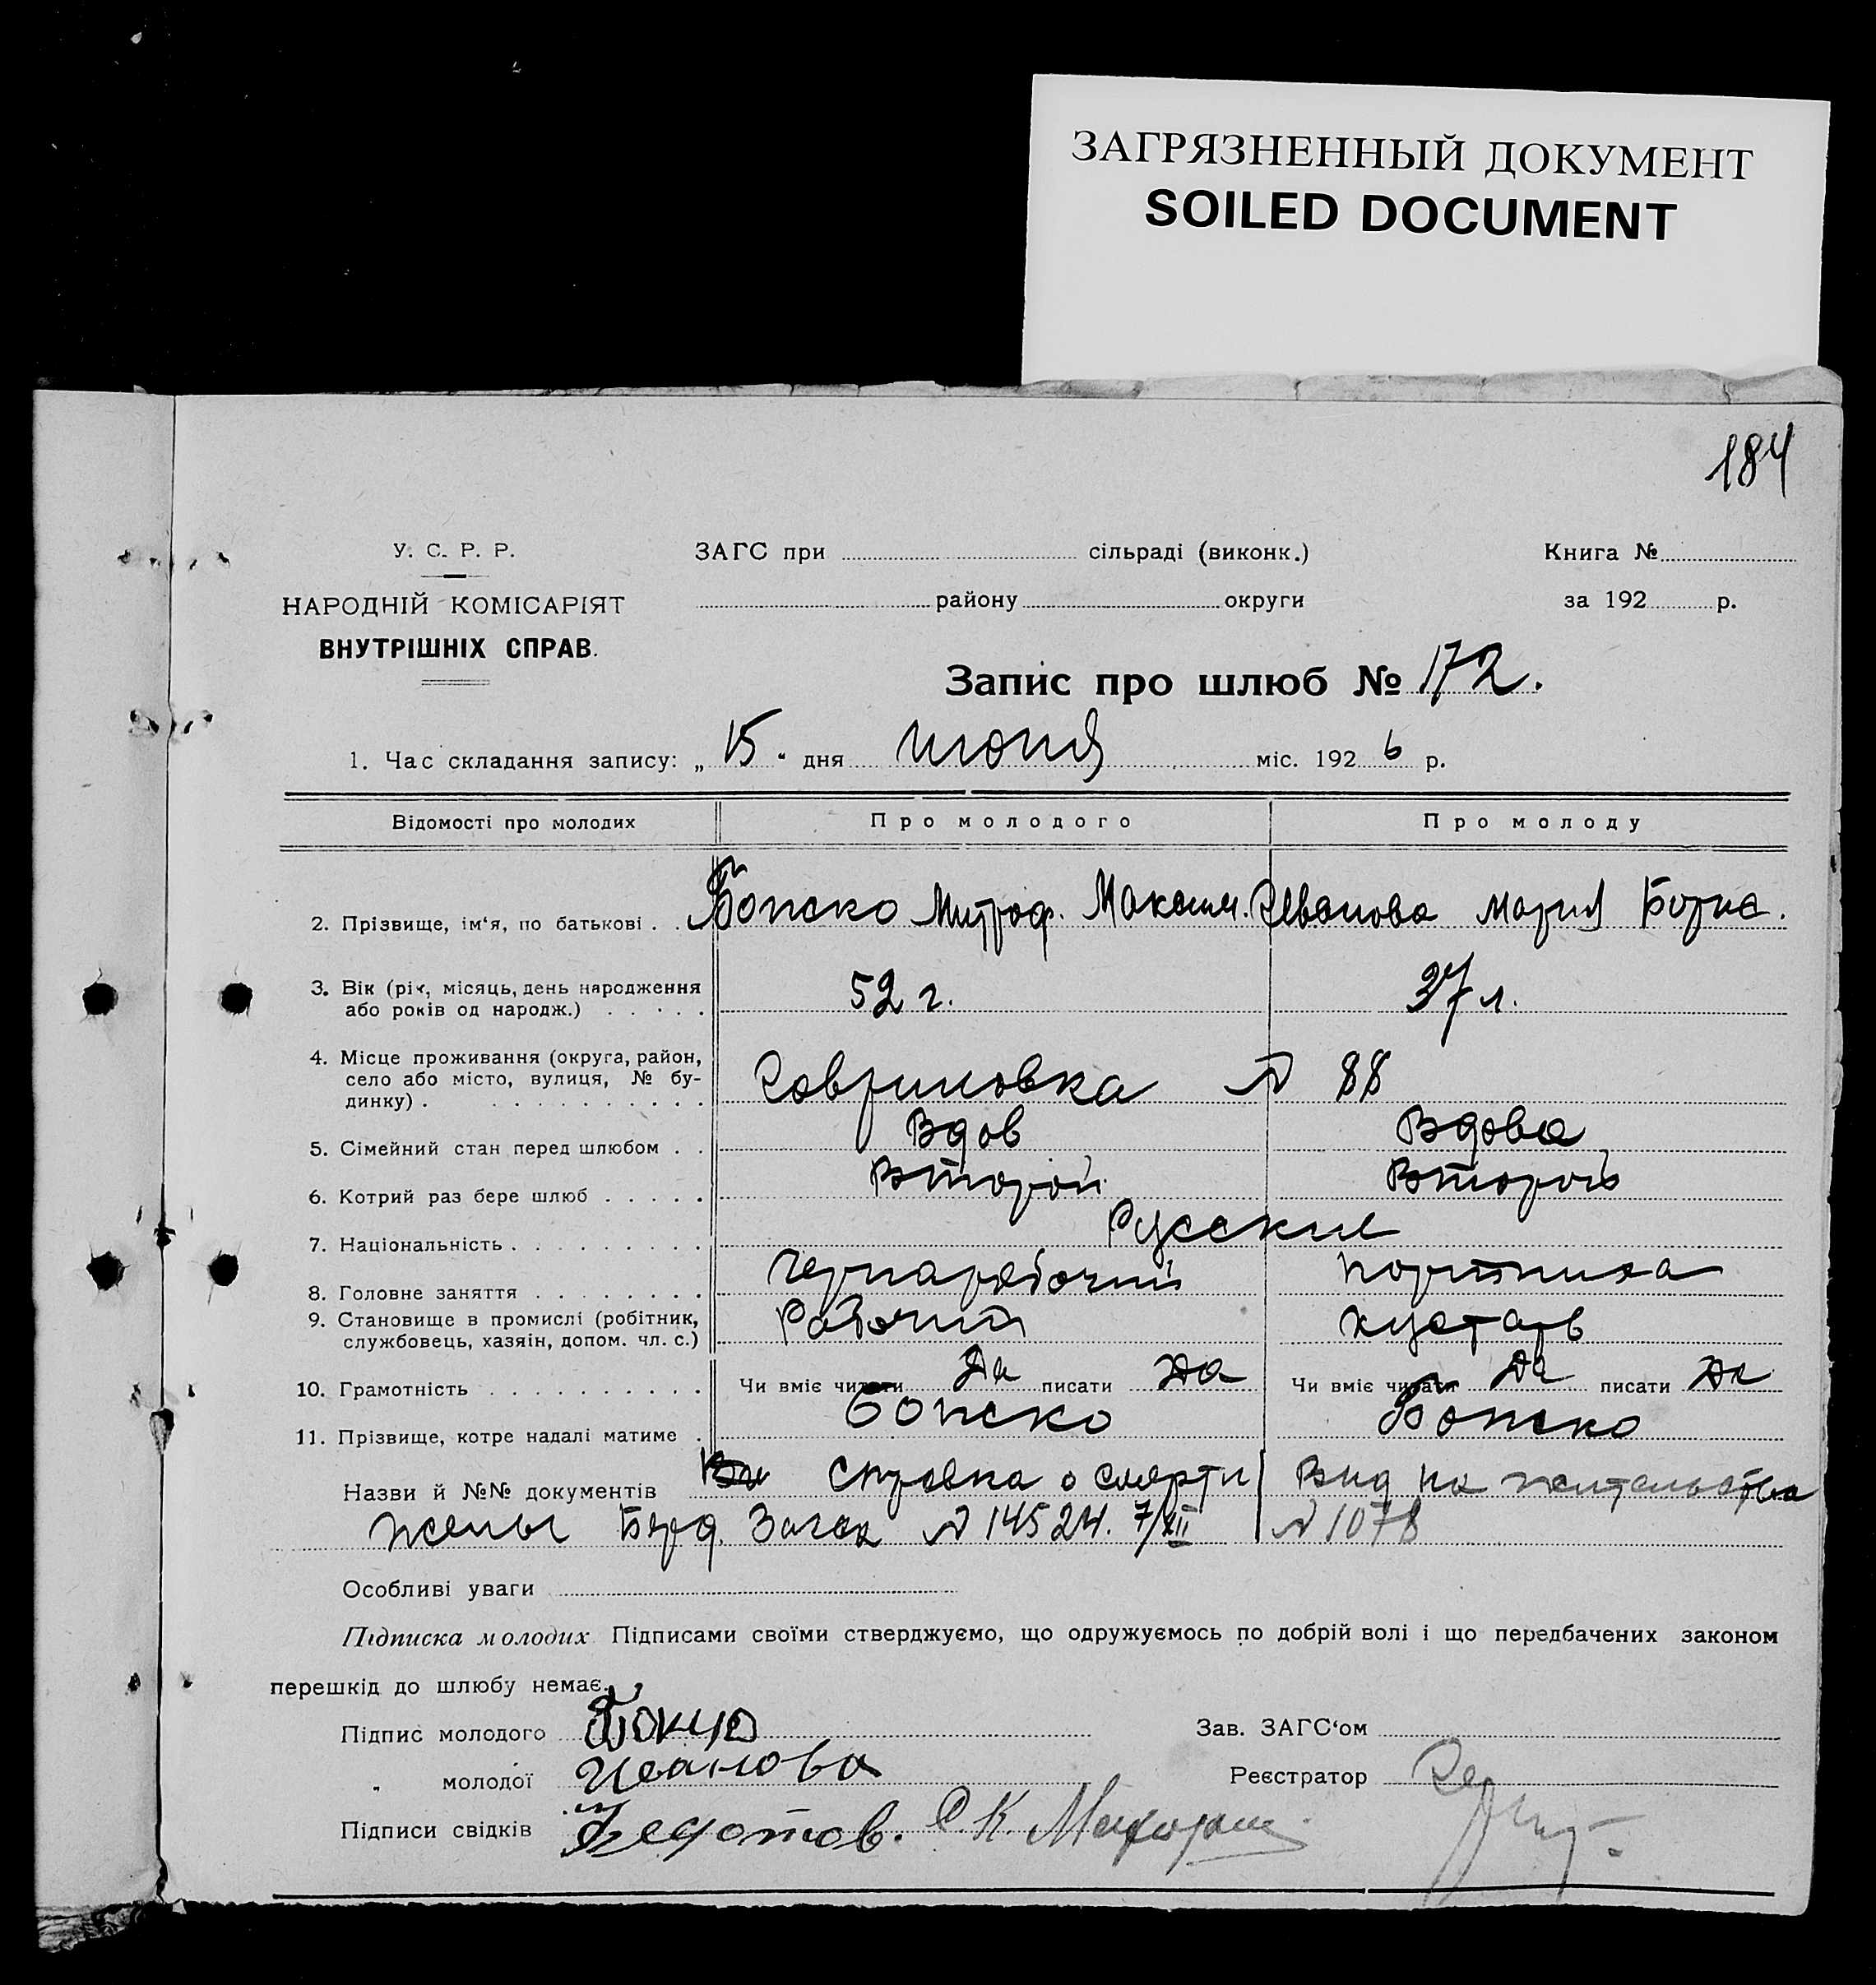 ЗАГРЯЗНЕННЫЙ ДОКУМЕНТ
SOILED DOCUMENT
184
У. С. Р. Р.
НАРОДНІЙ КОМІСАРІЯТ
ВНУТРІШНІХ СПРАВ.
ЗАГС при сільраді (виконк.)
району округи
Книга №
за 192 р.
Запис про шлюб № 172.
1. Час складання запису: „ 15 " дня июня міс. 1926 р.
Відомості про молодих Про молодого Про молоду
2. Прізвище, ім‘я, по батькові . . Бопско Митроф. Максим. Иванова Мария Борис.
3. Вік (рік, місяць, день народження
або років од народж.) . . . . . 52 г. 37 л.
4. Місце проживання (округа, район,
село або місто, вулиця, № бу-
динку) . . . . . . . . . . . Гавриловка № 88
5. Сімейний стан перед шлюбом . . Вдов Вдова
6. Котрий раз бере шлюб . . . . . Второй Второй
7. Національність . . . . . . . . . Русские
8. Головне заняття . . . . . . . . Чернарабочий портниха
9. Становище в промислі (робітник,
службовець, хазяін, допом. чл. с.) Рабочий кустарь
10. Грамотність . . . . . . . . . . Чи вміє читати Да писати Да Чи вміє читати Да писати Да
11. Прізвище, котре надалі матиме . Бопско Бопско
Назви й №№ документів Справка о смерти Вид на жительство
жены Берд. Загса № 145 24. 7/XII № 1078
Особливі уваги
Підписка молодих Підписами своїми стверджуємо, що одружуємось по добрій волі і що передбачених законом
перешкід до шлюбу немає.
Підпис молодого
Зав. ЗАГС‘ом
„ молодої Иванова
Реєстратор
Підписи свідків Федотов. С. К.